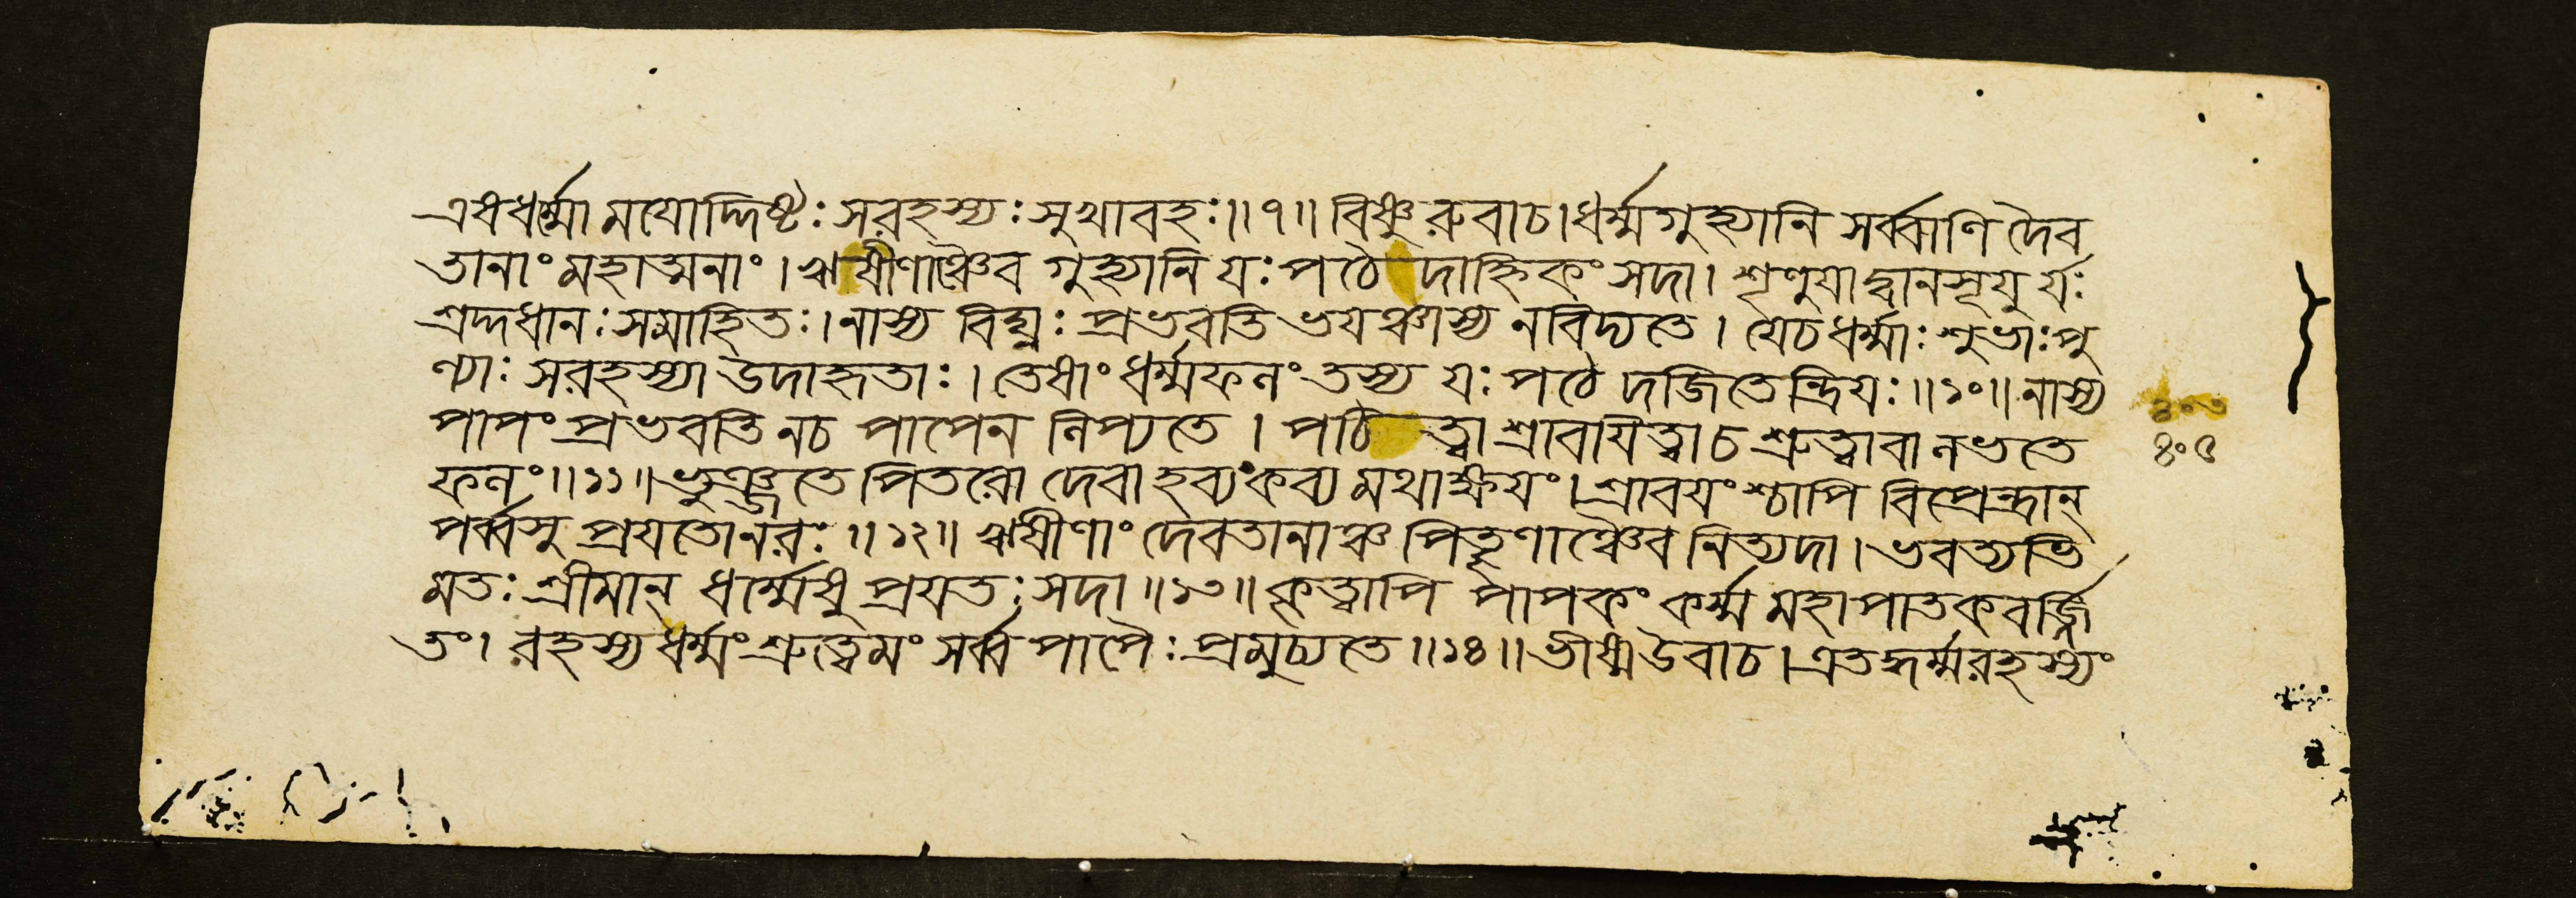 এষধর্ম্মো ময়োদ্দিষ্টঃ সরহস্যঃ সুখাবহঃ॥৭॥ বিষ্ণুরুবাচ। ধর্ম্মগুহ্যানি সর্ব্বাণি দৈব
তানাং মহাত্মনাং। ঋষীণাঞ্চৈব গুহ্যানি যঃ পঠে দাহ্নিকং সদা। শৃণুয়াদ্বানসূয়ু র্যঃ
শ্রদ্দধানঃ সমাহিতঃ। নাস্য বিঘ্নঃ প্রভবতি ভয়ঞ্চাস্য নবিদ্যতে। যেচধর্ম্মাঃ শুভাঃ পু
ণ্যাঃ সরহস্যা উদাহৃতাঃ। তেষাং ধর্ম্মফলং তস্য যঃ পঠে দজিতেন্দ্রিয়ঃ॥১০॥ নাস্য
পাপং প্রভবতি নচ পাপেন লিপ্যতে। পঠিত্বা শ্রাবয়িত্বাচ শ্রুত্বাবা লভতে
ফলং॥১১॥ ভুঞ্জতে পিতরো দেবা হব্যংকব্য মথাক্ষয়ং। শ্রাবয়ং শ্চাপি বিপ্রেন্দ্রান্
পর্ব্বসু প্রযতোনরঃ॥১২॥ ঋষীণাং দেবতানাঞ্চ পিতৄণাঞ্চৈব নিত্যদা। ভবত্যভি
মতঃ শ্রীমান্ ধর্ম্মেষু প্রযতঃ সদা॥১৩॥ কৃত্বাপি পাপকং কর্ম্ম মহাপাতকবর্জ্জি
তং। রহস্যধর্ম্মং শ্রুত্বেমং সর্ব্ব পাপৈঃ প্রমুচ্যতে॥১৪॥ ভীষ্মউবাচ। এতদ্ধর্ম্মরহস্যং
৪০৫